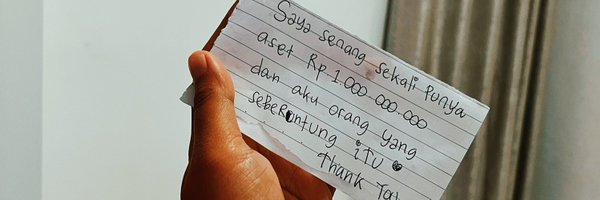 Saya senang sekali Punya
aset Rp 1.000.000.000
dan aku orang yang
sebeRuntung iTu
Thank